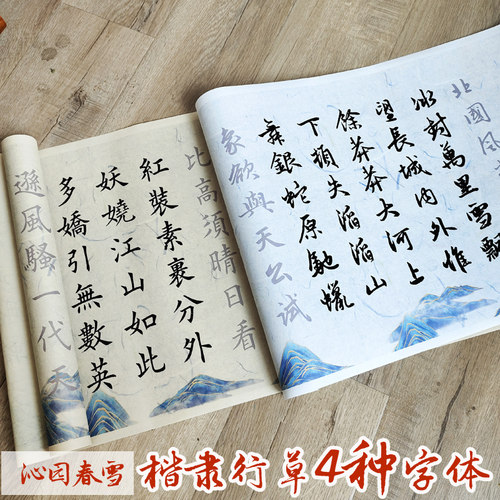 北國風
冰封萬里雪飄
望長城内外惟
餘莽莽大河上
下頓失滔滔山
舞銀蛇原馳蠟
象欲與天公試
比高須晴日看
紅裝素裹分外
妖嬈江山如此
多嬌引無數英
遜風騷一代天
沁园春雪
楷隶行草4种字体